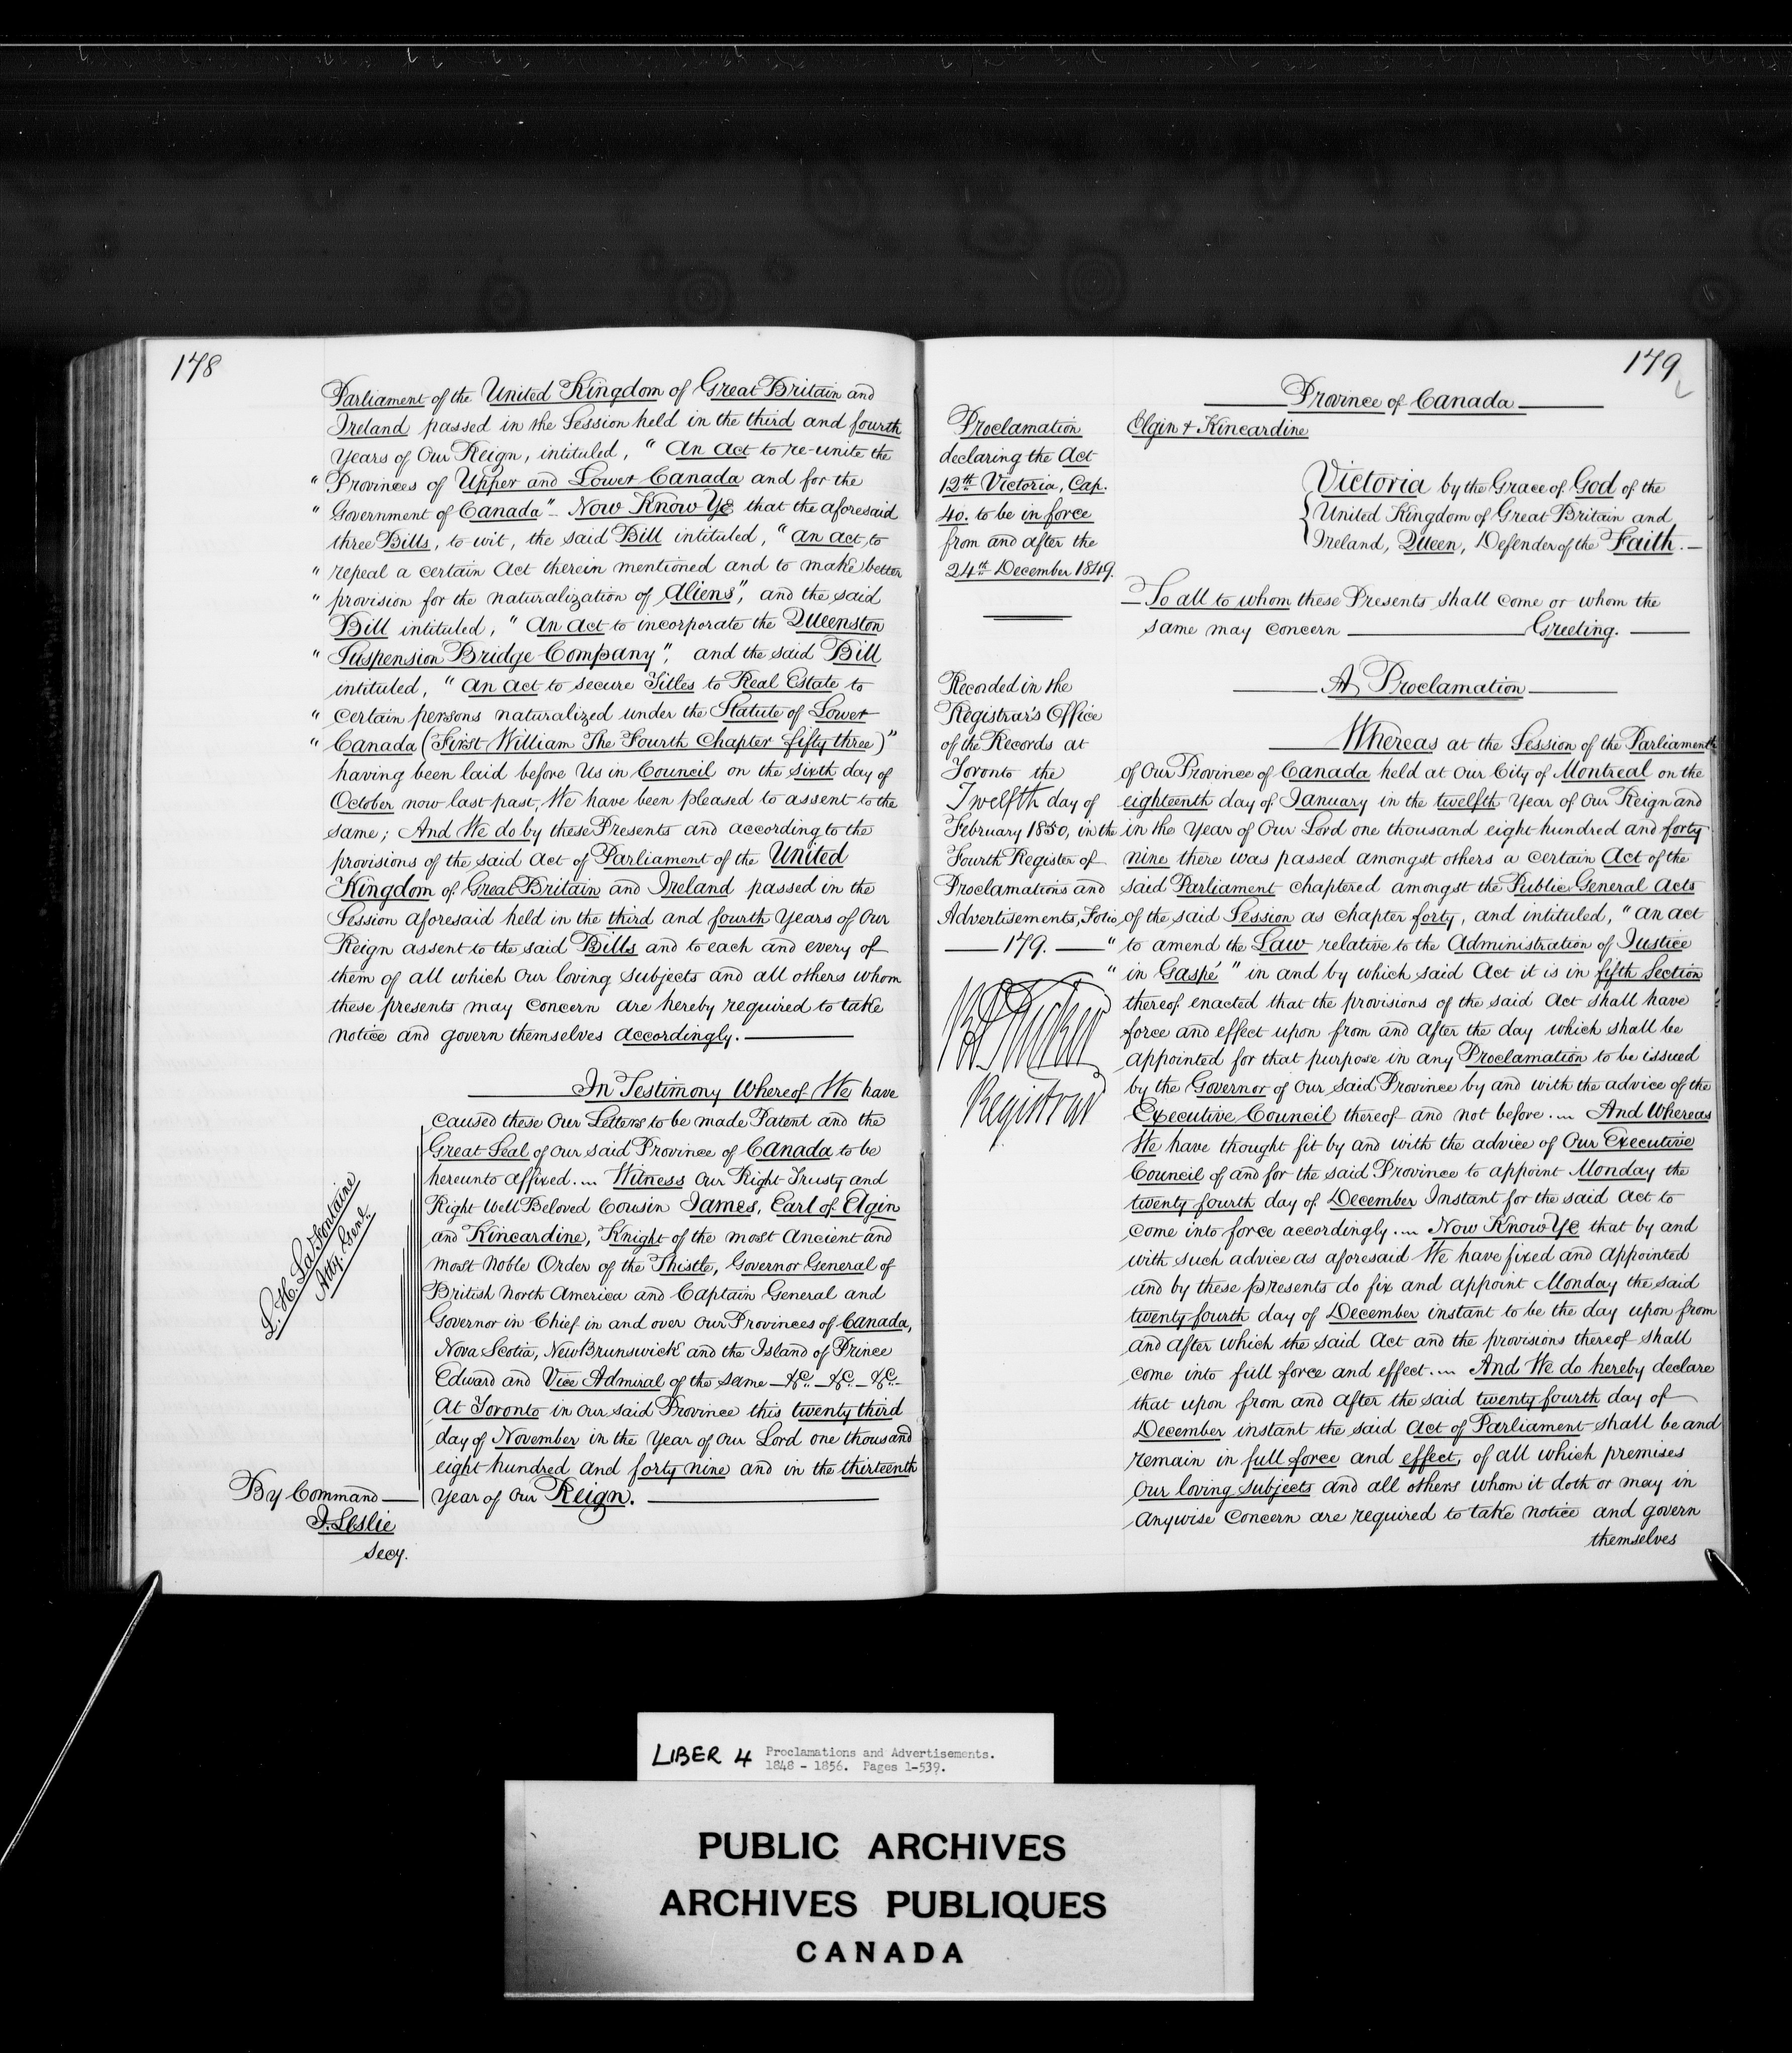 178
Parliament of the United Kingdom of Great Britain and
Ireland passed in the Session held in the third and fourth
Years of Our Reign, intituled, "An Act to re-unite the
" Provinces of Upper and Lower Canada and for the
" Government of Canada" – Now Know Ye that the aforesaid
three Bills, to wit, the said Bill intituled, "An Act to
" repeal a certain Act therein mentioned and to make better
" provision for the naturalization of Aliens", and the said
Bill intituled, "An Act to incorporate the Queenston
" Suspension Bridge Company", and the said Bill
intituled, "An Act to secure Titles to Real Estate to
" certain persons naturalized under the Statute of Lower
" Canada (First William The Fourth Chapter fifty three)"
having been laid before Us in Council on the sixth day of
October now last past, We have been pleased to assent to the
same; And We do by these Presents and according to the
provisions of the said Act of Parliament of the United
Kingdom of Great Britain and Ireland passed in the
Session aforesaid held in the third and fourth Years of Our
Reign assent to the said Bills and to each and every of
them of all which Our loving Subjects and all others whom
these presents may concern are hereby required to take
notice and govern themselves accordingly.
In Testimony Whereof We have
caused these Our Letters to be made Patent and the
Great Seal of Our said Province of Canada to be
hereunto affixed. ... Witness Our Right Trusty and
Right Well Beloved Cousin James, Earl of Elgin
and Kincardine, Knight of the most Ancient and
most Noble Order of the Thistle, Governor General of
British North America and Captain General and
Governor in Chief in and over Our Provinces of Canada,
Nova Scotia, New Brunswick and the Island of Prince
Edward and Vice Admiral of the same – &c. – &c. – &c. –
At Toronto in Our said Province this twenty third
day of November in the Year of Our Lord one thousand
eight hundred and forty nine and in the thirteenth
Year of Our Reign.
L. H. LaFontaine
Atty. Genl.
By Command
J. Leslie
Secy.
179
Proclamation
declaring the Act
12th Victoria, Cap.
40. to be in force
from and after the
24th December 1849.
Recorded in the
Registrar's Office
of the Records at
Toronto the
Twelfth day of
February 1850, in the
Fourth Register of
Proclamations and
Advertisements, Folio
179.
Registrar
Province of Canada
Elgin & Kincardine
Victoria by the Grace of God of the
United Kingdom of Great Britain and
Ireland, Queen, Defender of the Faith. –
To all to whom these Presents shall come or whom the
same may concern Greeting.
A Proclamation
Whereas at the Session of the Parliament
of Our Province of Canada held at Our City of Montreal on the
eighteenth day of January in the twelfth Year of Our Reign and
in the Year of Our Lord one thousand eight hundred and forty
nine there was passed amongst others a certain Act of the
said Parliament chaptered amongst the Public General Acts
of the said Session as chapter forty, and intituled, "An Act
" to amend the Law relative to the Administration of Justice
" in Gaspé" in and by which said Act it is in fifth Section
thereof enacted that the provisions of the said Act shall have
force and effect upon from and after the day which shall be
appointed for that purpose in any Proclamation to be issued
by the Governor of Our said Province by and with the advice of the
Executive Council thereof and not before. ... And Whereas
We have thought fit by and with the advice of Our Executive
Council of and for the said Province to appoint Monday the
twenty fourth day of December Instant for the said Act to
come into force accordingly. ... Now Know Ye that by and
with such advice as aforesaid We have fixed and appointed
and by these presents do fix and appoint Monday the said
twenty fourth day of December instant to be the day upon from
and after which the said Act and the provisions thereof shall
come into full force and effect. ... And We do hereby declare
that upon from and after the said twenty fourth day of
December instant the said Act of Parliament shall be and
remain in full force and effect, of all which premises
Our loving Subjects and all others whom it doth or may in
anywise concern are required to take notice and govern
themselves
LIBER 4 Proclamations and Advertisements.
1848 - 1856. Pages 1-539.
PUBLIC ARCHIVES
ARCHIVES PUBLIQUES
CANADA